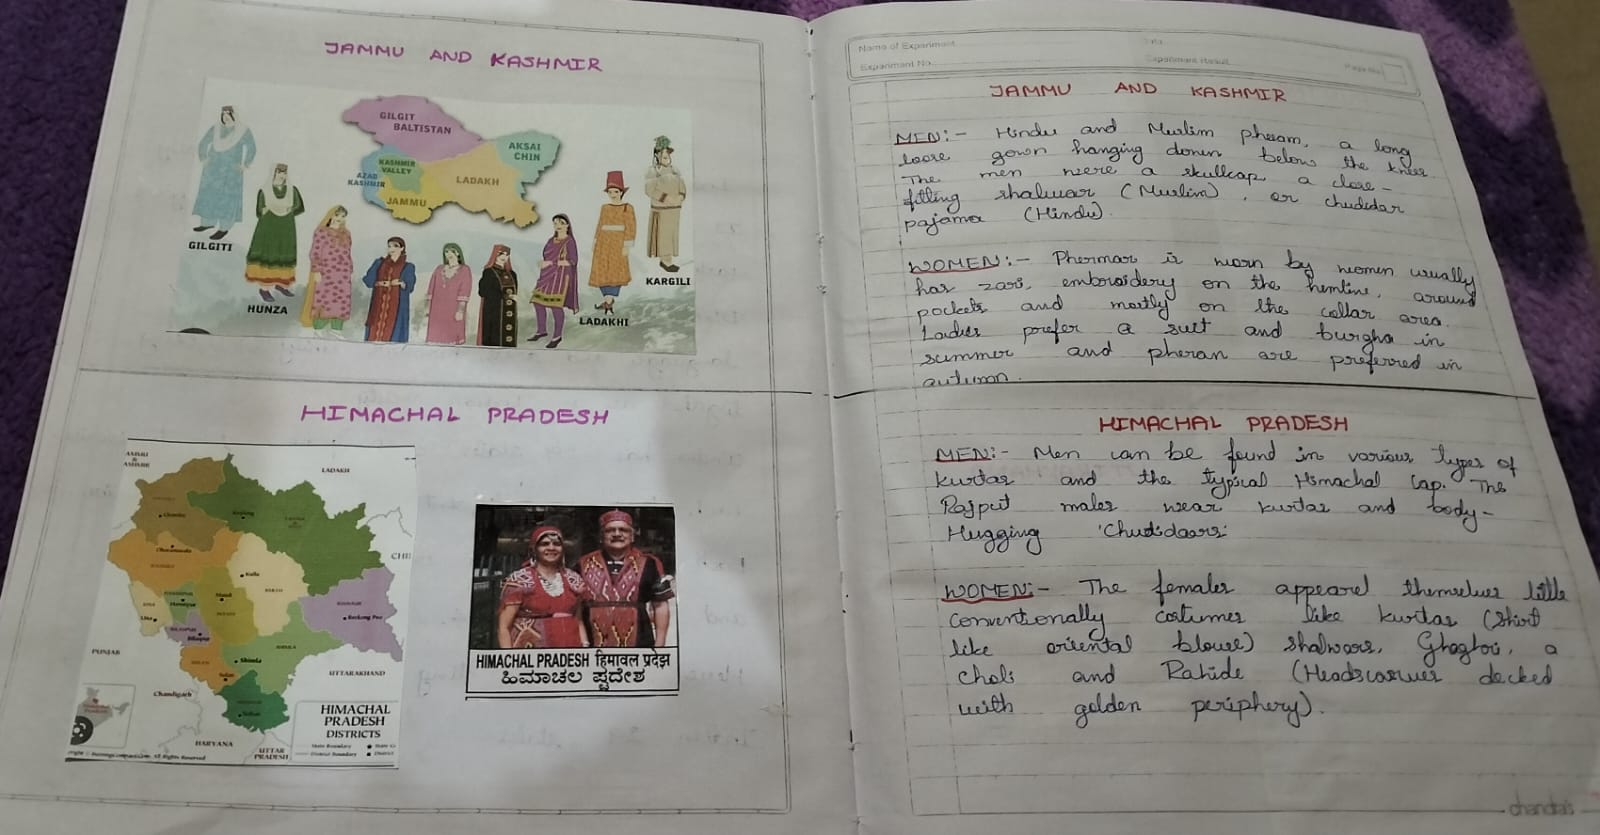 JAMMU AND KASHMIR
GILGIT
BALTISTAN
AKSAI
CHIN
KASHMIR
VALLEY
AZAD
KASHMIR
LADAKH
JAMMU
GILGITI
HUNZA
LADAKHI
KARGILI
HIMACHAL PRADESH
LADAKH
Chamba
Keylong
Dharamsala
Kullu
Mandi
Hamirpur
Una
Bilaspur
Reckong Peo
Shimla
Solan
Nahan
PUNJAB
Chandigarh
UTTARAKHAND
HARYANA
UTTAR
PRADESH
HIMACHAL
PRADESH
DISTRICTS
State Boundary
District Boundary
HIMACHAL PRADESH हिमाचल प्रदेश
ಹಿಮಾಚಲ ಪ್ರದೇಶ
Name of Experiment
Experiment No.
Experiment Result
Page No.
JAMMU AND KASHMIR
MEN:- Hindu and Muslim pheram, a long
loose gown hanging down below the knees.
The men were a skullcap a close-
fitting shalwar (Muslim), or chudidar
pajama (Hindu).
WOMEN:- Phermar is worn by women usually
has zari, embroidery on the hemline, around
pockets and mostly on the collar area.
Ladies prefer a suit and burgha in
summer and pheran are preferred in
autumn.
HIMACHAL PRADESH
MEN:- Men can be found in various types of
kurtas and the typical Himachal cap. The
Rajput males wear kurtas and body-
Hugging 'Chudidaars'
WOMEN:- The females appearel themselves little
conventionally costumes like kurtas (Shirt
like oriental blouse) shalwars, Ghagtri, a
choli and Rahide (Headscarves decked
with golden periphery).
chandra's